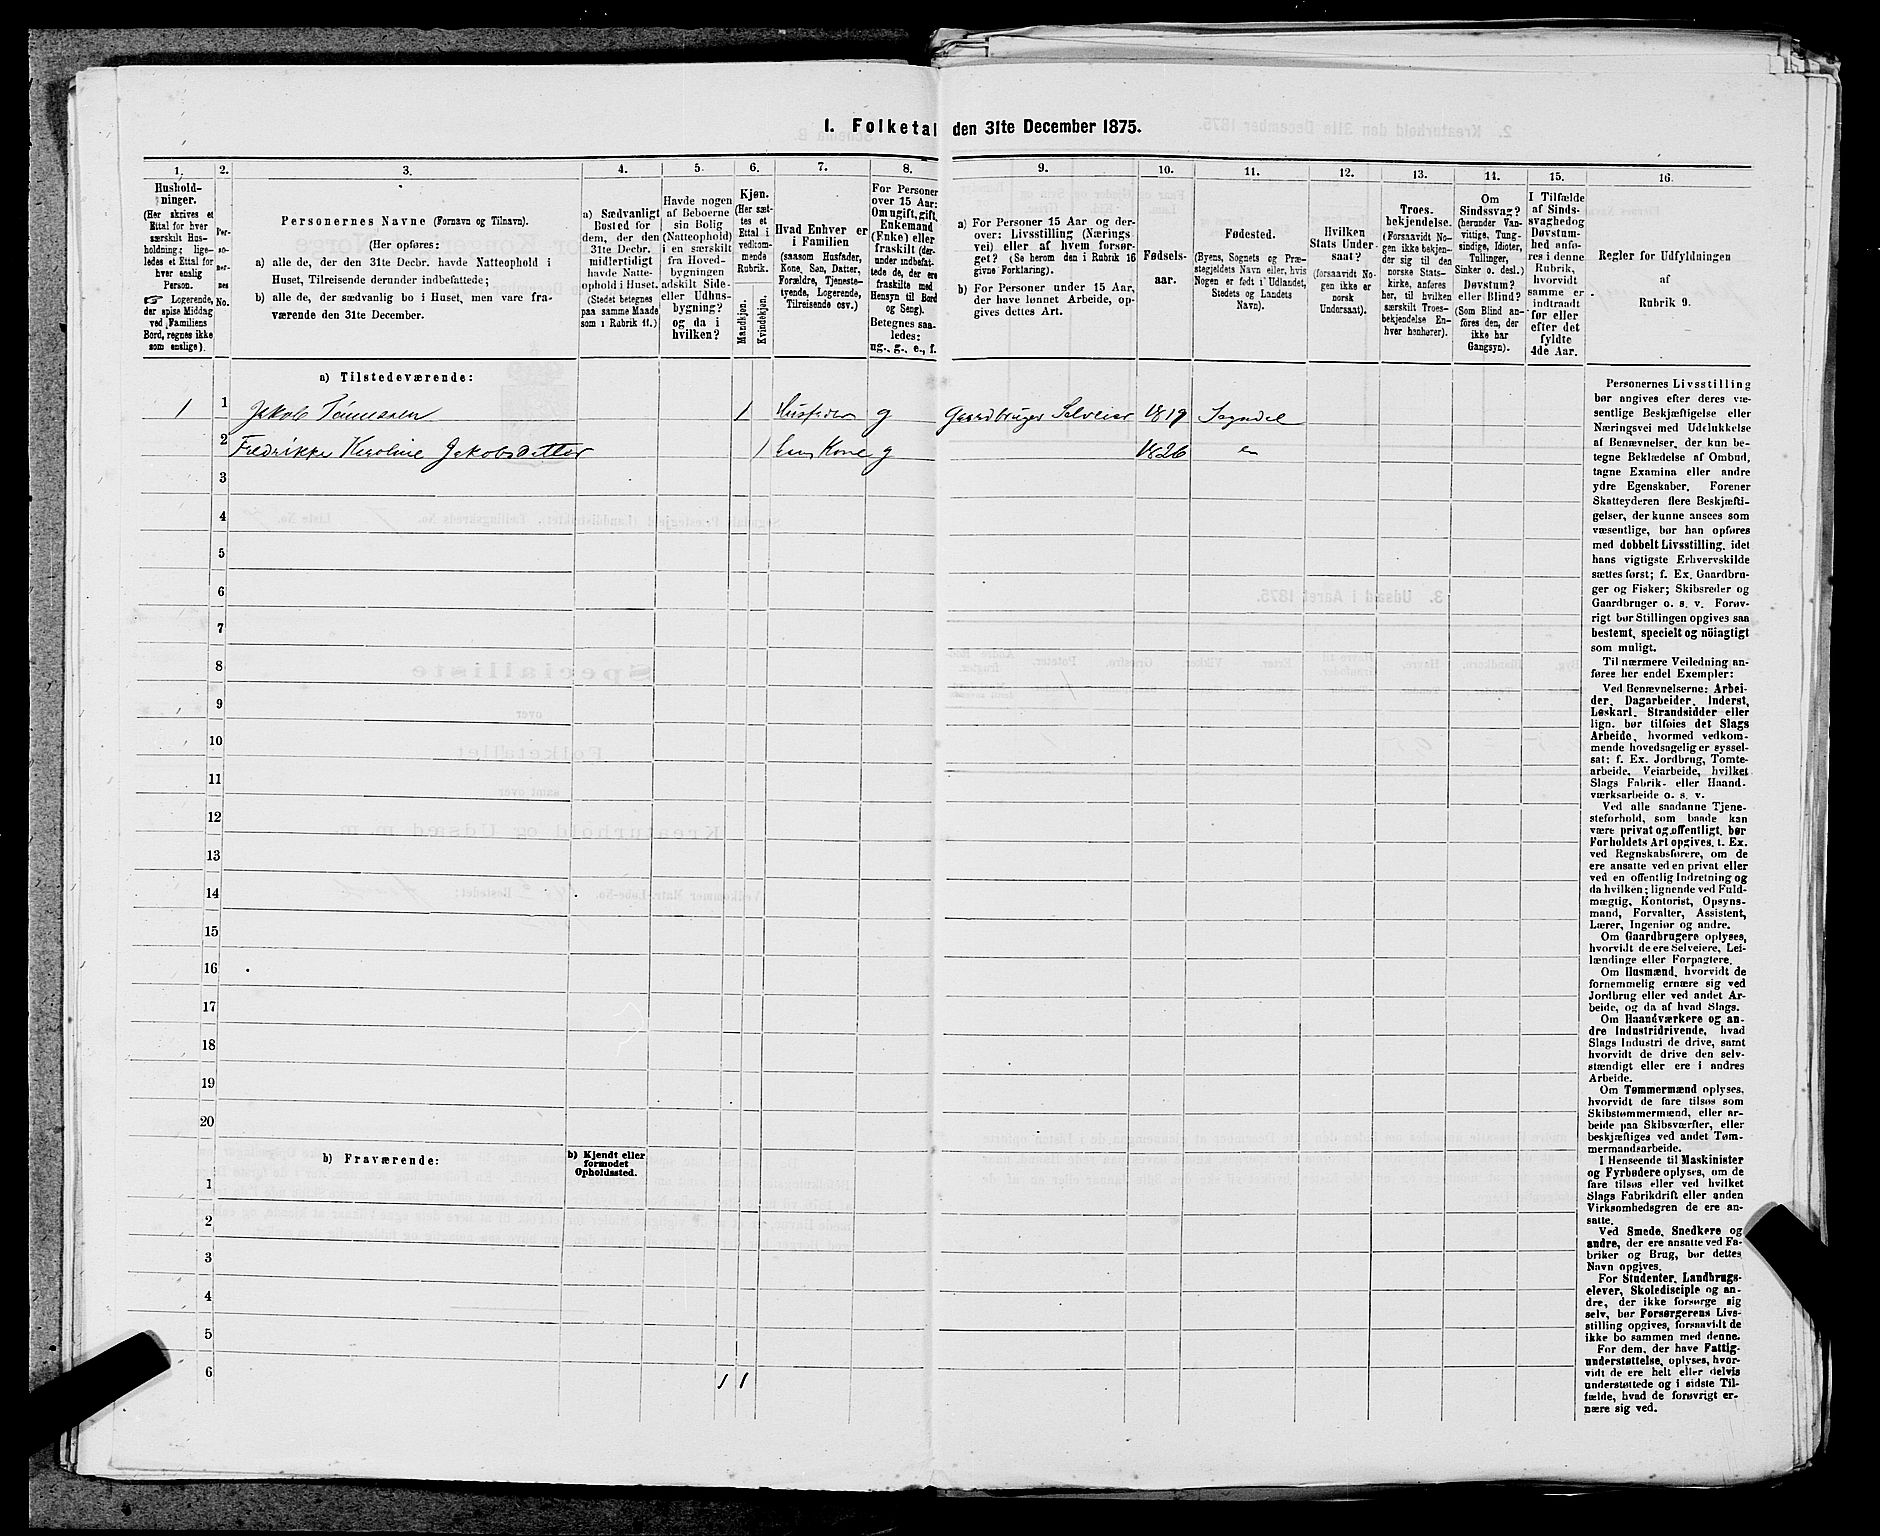 1. Folketal den 31te December 1875.
1.
Hushold-
ninger.
(Her skrives et
Ettal for hver
særskilt Hus-
holdning; lige-
ledes et Ettal for
hver enslig
Person.
☞ Logerende,
der spise Middag
ved Familiens
Bord, regnes ikke
som enslige).
2.
Per-
so-
ner-
nes
No.
3.
Personernes Navne (Fornavn og Tilnavn).
(Her opføres:
a) alle de, der den 31te Decbr. havde Natteophold i
Huset, Tilreisende derunder indbefattede;
b) alle de, der sædvanlig bo i Huset, men vare fra-
værende den 31te December.
4.
a) Sædvanligt
Bosted for
dem, der den
31te Decbr.
midlertidigt
havde Natte-
ophold i Huset.
(Stedet betegnes
paa samme Maade
som i Rubrik 11.)
5.
Havde nogen
af Beboerne
sin Bolig
(Natteophold)
i en særskilt
fra Hoved-
bygningen
adskilt Side-
eller Udhus-
bygning?
og da i
hvilken?
6.
Kjøn.
(Her sæt-
tes et
Ettal i
vedkom-
mende
Rubrik.
Mandkjøn.
Kvindekjøn.
7.
Hvad Enhver er
i Familien
(saasom Husfader,
Kone, Søn, Datter,
Forældre, Tjeneste-
tyende, Logerende,
Tilreisende osv.)
8.
For Personer
over 15 Aar:
Om ugift, gift,
Enkemand
(Enke) eller
fraskilt (der-
under indbefat-
tede de, der ere
fraskilte med
Hensyn til Bord
og Seng).
Betegnes saa-
ledes:
ug., g., e., f.
9.
a) For Personer 15 Aar og der-
over: Livsstilling (Nærings-
vei) eller af hvem forsør-
get? (Se herom den i Rubrik 16
givne Forklaring).
b) For Personer under 15 Aar,
der have lønnet Arbeide, op-
gives dettes Art.
10.
Fødsels-
aar.
11.
Fødested.
(Byens, Sognets og Præ-
stegjeldets Navn eller, hvis
Nogen er født i Udlandet,
Stedets og Landets
Navn).
12.
Hvilken
Stats Under-
saat?
(forsaavidt No-
gen ikke er
norsk
Undersaat).
13.
Troes-
bekjendelse.
(Forsaavidt No-
gen ikke bekjen-
der sig til den
norske Stats-
kirke, anføres
her, til hvilken
særskilt Troes-
bekjendelse En-
hver henhører).
14.
Om
Sindssvag?
(herunder Van-
vittige, Tung-
sindige, Idioter,
Tullinger,
Sinker o. desl.)
Døvstum?
eller Blind?
(Som Blind an-
føres den, der
ikke har
Gangsyn).
15.
I Tilfælde
af Sinds-
svaghed og
Døvstum-
hed anfø-
res i denne
Rubrik,
hvorvidt
samme er
indtraadt
før eller
efter det
fyldte
4de Aar.
16.
Regler for Udfyldningen
af
Rubrik 9.
a) Tilstedeværende:
1 1 Jakob Tønnesen 1 Husfader g Gaardbruger Selveier 1819 Sogndal
2 Fredrikke Karoline Jakobsdatter 1 hans Kone g 1826 "
3
4
5
6
7
8
9
10
11
12
13
14
15
16
17
18
19
20
b) Fraværende:
b) Kjendt eller
formodet
Opholdssted.
1
2
3
4
5
6
1 1
Personernes Livsstilling
bør angives efter deres væ-
sentlige Beskjæftigelse eller
Næringsvei med Udelukkelse
af Benævnelser, der kun be-
tegne Beklædelse af Ombud,
tagne Examina eller andre
ydre Egenskaber. Forener
Skatteyderen flere Beskjæfti-
gelser, der kunne ansees som
væsentlige, bør han opføres
med dobbelt Livsstilling, idet
hans vigtigste Erhvervskilde
sættes først; f. Ex. Gaardbru-
ger og Fisker; Skibsreder og
Gaardbruger o. s. v. Forøv-
rigt bør Stillingen opgives saa
bestemt, specielt og nöiagtigt
som muligt.
Til nærmere Veiledning an-
føres her endel Exempler:
Ved Benævnelserne: Arbei-
der, Dagarbeider, Inderst,
Løskarl, Strandsidder eller
lign. bør tilføies det Slags
Arbeide, hvormed vedkom-
mende hovedsagelig er syssel-
sat; f. Ex. Jordbrug, Tomte-
arbeide, Veiarbeide, hvilket
Slags Fabrik- eller Haand-
værksarbeide o. s. v.
Ved alle saadanne Tjene-
steforhold, som baade kan
være privat og offentligt, bør
Forholdets Art opgives, t. Ex.
ved Regnskabsførere, om de
ere ansatte ved en privat eller
ved en offentlig Indretning og
da hvilken; lignende ved Fuld-
mægtig, Kontorist, Opsyns-
mand, Forvalter, Assistent,
Lærer, Ingeniør og andre.
Om Gaardbrugere oplyses,
hvorvidt de ere Selveiere, Lei-
lændinge eller Forpagtere.
Om Husmænd, hvorvidt de
fornemmelig ernære sig ved
Jordbrug eller ved andet Ar-
beide, og da af hvad Slags.
Om Haandværkere og an-
dre Industridrivende, hvad
Slags Industri de drive, samt
hvorvidt de drive den selv-
stændigt eller ere i andres
Arbeide.
Om Tømmermænd oplyses,
hvorvidt de fare tilsøs som
Skibstømmermænd, eller ar-
beide paa Skibsværfter, eller
beskjæftiges ved andet Tøm-
mermandsarbeide.
I Henseende til Maskinister
og Fyrbødere oplyses, om de
fare tilsøs eller ved hvilket
Slags Fabrikdrift eller anden
Virksomhedsgren de ere an-
satte.
Ved Smede, Snedkere og
andre, der ere ansatte ved Fa-
briker og Brug, bør dettes
Navn opgives.
For Studenter, Landbrugs-
elever, Skoledisciple og an-
dre, der ikke forsørge sig
selv, bør Forsørgerens Livs-
stilling opgives, forsaavidt de
ikke bo sammen med denne.
For dem, der have Fattig-
understøttelse, oplyses, hvor-
vidt de ere helt eller delvis
understøttede og i sidste Til-
fælde, hvad de forøvrigt er-
nære sig ved.